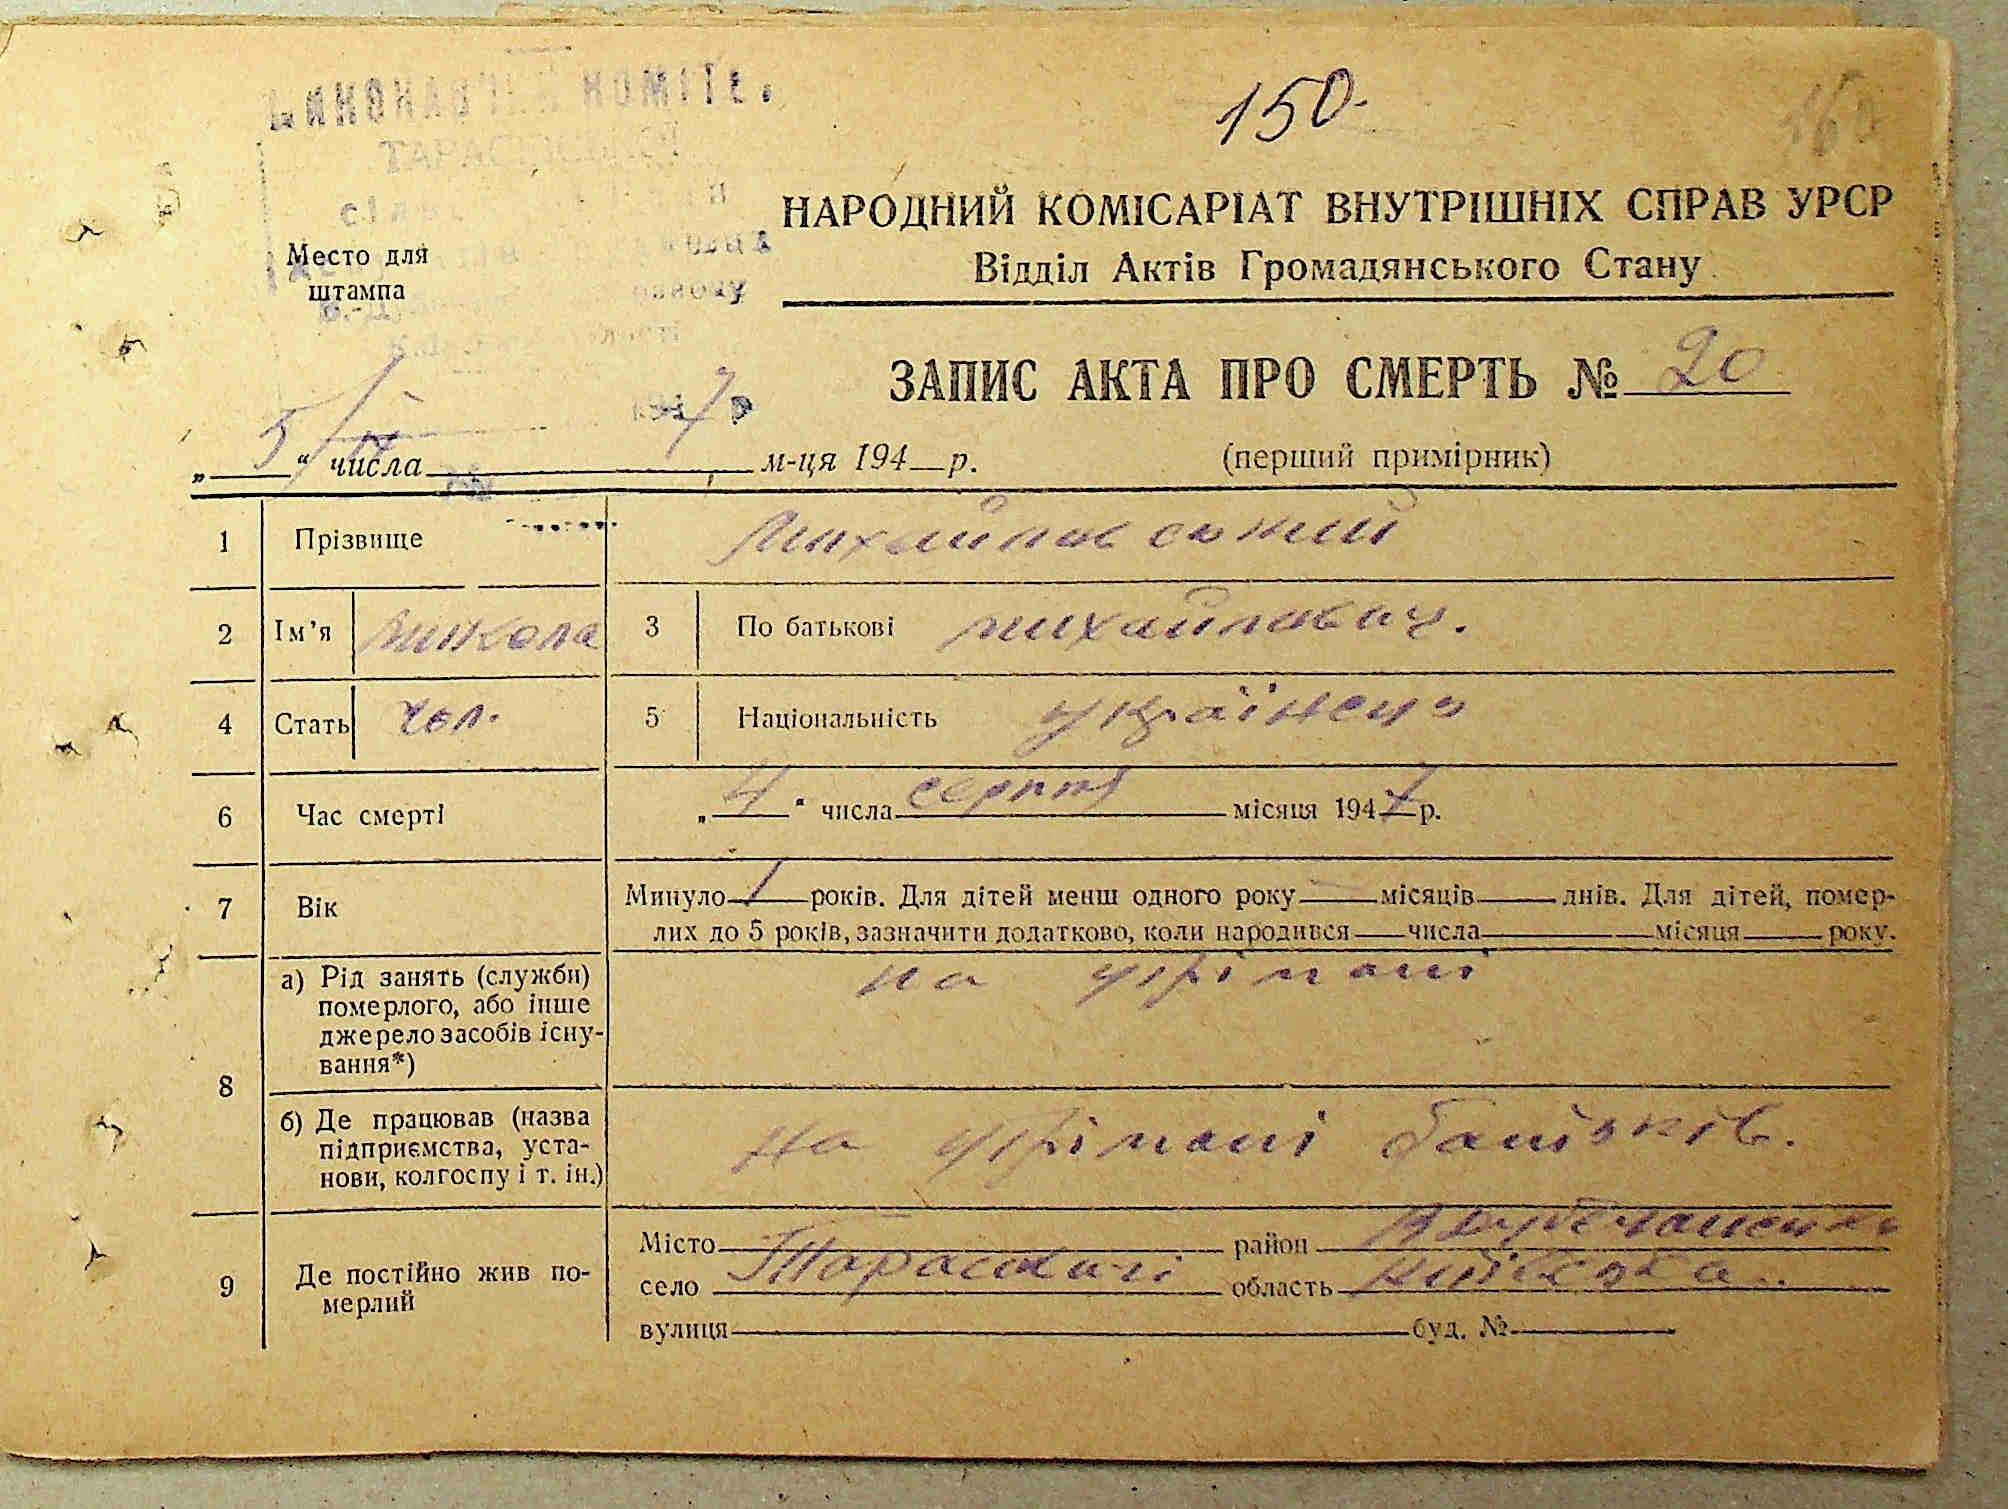 150.
НАРОДНИЙ КОМІСАРІАТ ВНУТРІШНІХ СПРАВ УРСР
Відділ Актів Громадянського Стану
Место для
штампа
ЗАПИС АКТА ПРО СМЕРТЬ № 20
„ 5 “ числа м-ця 194 р. (перший примірник)
1 Прізвище Михайловський
2 Ім'я Микола 3 По батькові Михайлович.
4 Стать чол. 5 Національність українець
6 Час смерті „ 4 “ числа серпня місяця 1947 р.
7 Вік Минуло 1 років. Для дітей менш одного року — місяців днів. Для дітей, помер-
лих до 5 років, зазначити додатково, коли народився числа місяця року.
8 а) Рід занять (служби) померлого, або інше джерело засобів існу-вання*) на утрімані
б) Де працював (назва підприємства, уста-нови, колгоспу і т. ін.) на утрімані батьків.
9 Де постійно жив по-мерлий
Місто район
село Тарасовичі область Київська.
вулиця буд. №